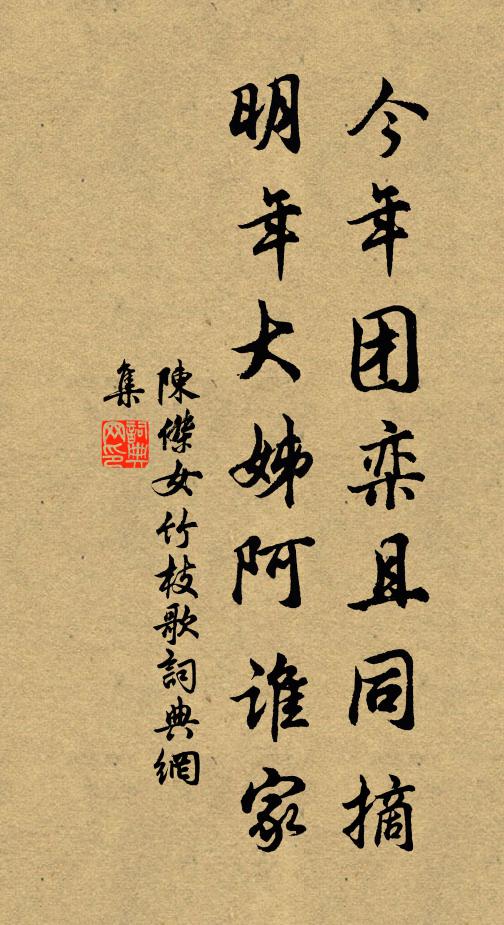 今年团栾且同摘
明年大姊阿谁家
陳傑女竹枝歌詞典網
集
詞典網印